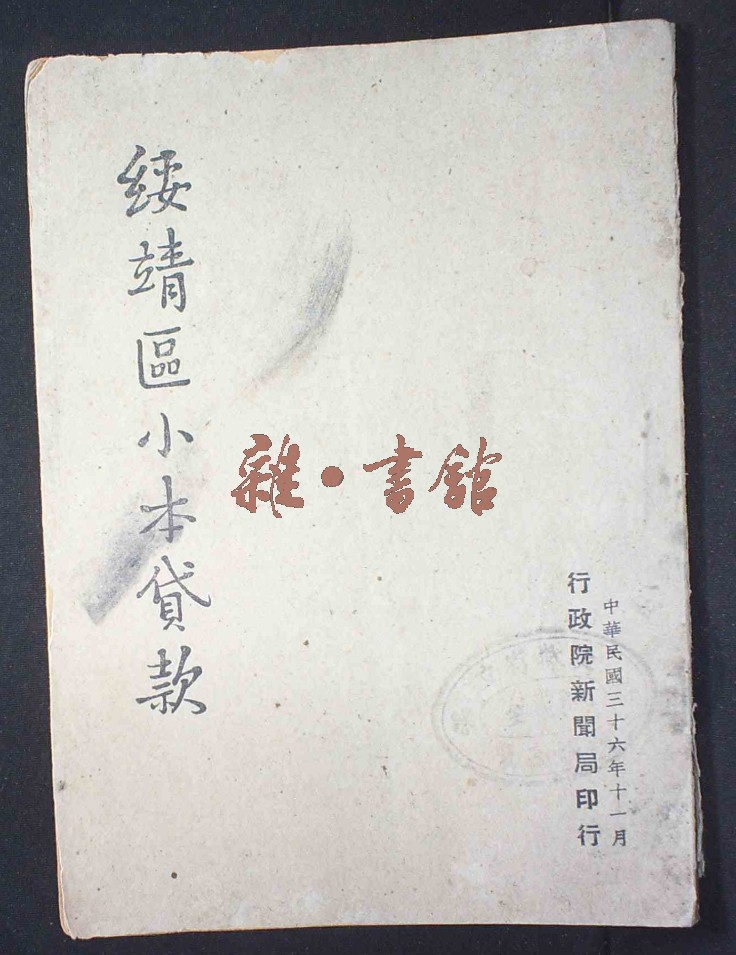 中華民國三十六年十一月
行政院新聞局印行
雜·書館
綏靖區小本貸款